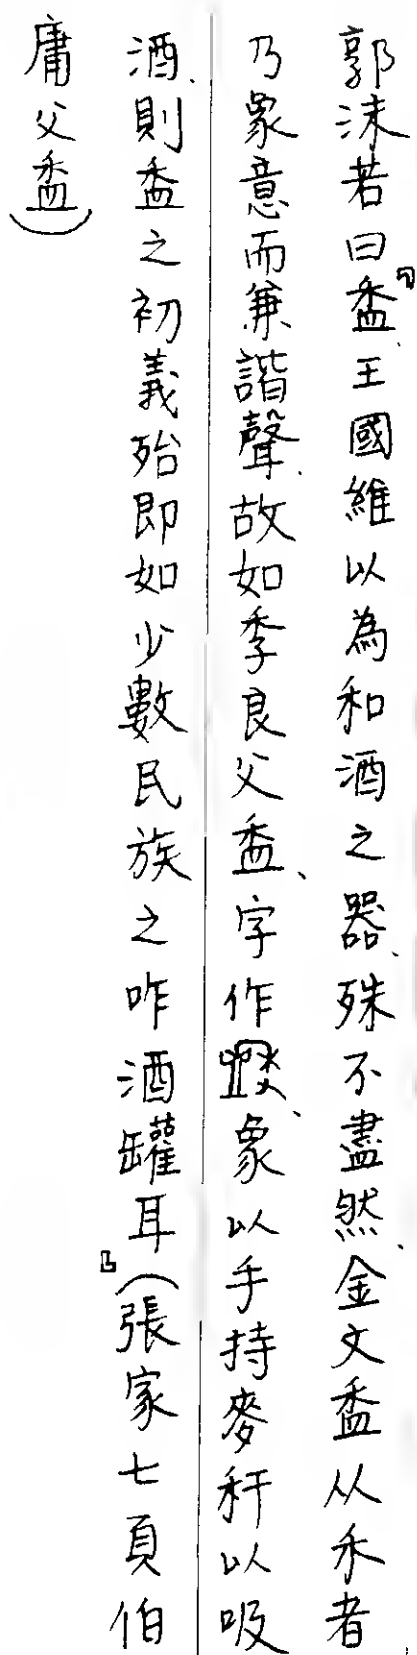 郭沫若曰『盉、王國維以為和酒之器、殊不盡然、金文盉从禾者
乃象意而兼諧聲、故如季良父盉、字作、象以手持麥秆以吸
酒、則盉之初義殆即如少數民族之咋酒罐耳』（張家七頁伯
庸父盉）